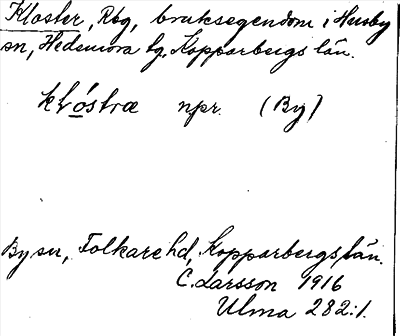 Kloster, Rbg, bruksegendom i Husby
sn, Hedemora tg, Kopparbergs län.
klo̱stræ npr. (By)
By sn, Folkare hd, Kopparbergs län.
C. Larsson 1916
Ulma 282:1.